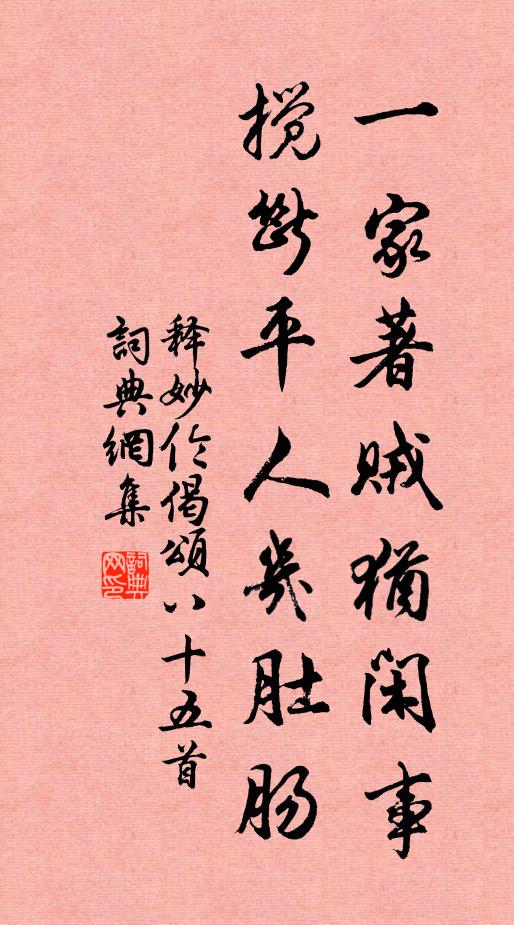 一家著贼犹闲事
搅断平人几肚肠
释妙伦偈颂八十五首
词典网集
词典网印